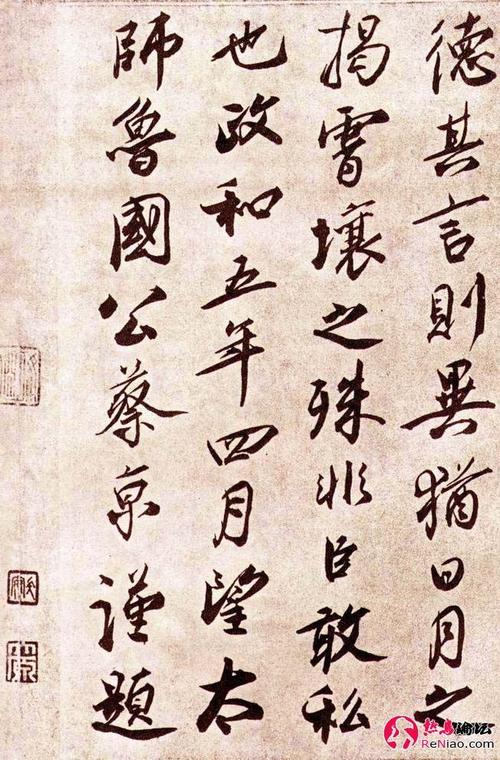 德其言則異猶日月之
揭霄壤之殊非臣敢私
也政和五年四月望太
師魯國公蔡京謹題
熱鳥論坛
ReNiao.com